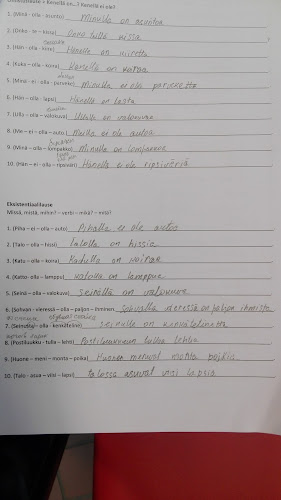 Kenellä on...? Kenellä ei ole?
1. (Minä - olla - asunto) Minulla on asuntoa
2. (Onko - te - kissa) Onko teillä kissa ?
3. (Hän - olla - kiire) Hänellä on kiirettä
4. (Kuka - olla - koira) Kenellä on koiraa
5. (Minä - ei - olla - parveke) Minulla ei ole parveketta
6. (Hän - olla - lapsi) Hänellä on lasta
7. (Ulla - olla - valokuva) Ullalla on valokuvaa
8. (Me - ei - olla - auto) Meillä ei ole autoa
9. (Minä - olla - lompakko) Minulla on lompakkoa
10. (Hän - ei - olla - ripsiväri) Hänellä ei ole ripsiväriä
Eksistentiaalilause
Missä, mistä, mihin? - verbi - mikä? - mitä?
1. (Piha - ei - olla - auto) Pihalla ei ole autoa
2. (Talo - olla - hissi) talolla on hissiä
3. (Katu - olla - koira) Kadulla on koiraa
4. (Katto - olla - lamppu) katolla on lamppua
5. (Seinä - olla - valokuva) seinällä on valokuvaa
6. (Sohvan - vieressä - olla - paljon - ihminen) Sohvalla vieressä on paljon ihmistä
7. (Seinusta - olla - kemiläinen)
8. (Postiluukku - tulla - lehti) Postiluukkuun tullaa lehtiä
9. (Huone - meni - monta - poika) Huoneen menevät monta poikia
10. (Talo - asua - viisi - lapsi) talossa asuvat viisi lapsia